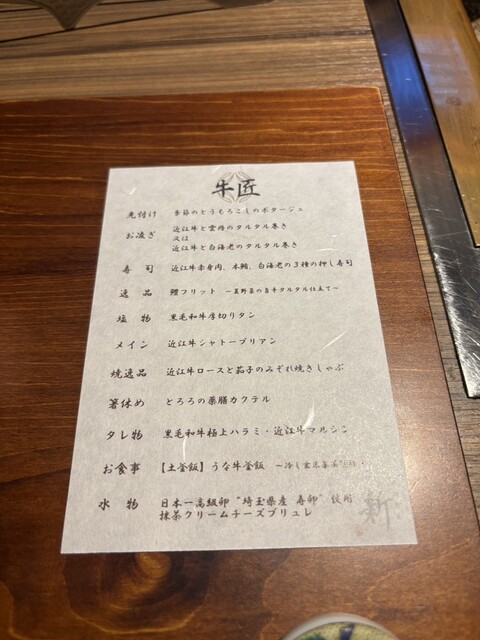 牛匠
先付け 季節のとうもろこしのポタージュ
お凌ぎ 近江牛と雲丹のタルタル巻き
又は
近江牛と白海老のタルタル巻き
寿司 近江牛赤身肉、本鮪、白海老の3種の押し寿司
逸品 鱧フリット ～夏野菜の旨辛タルタル仕立て～
塩物 黒毛和牛厚切りタン
メイン 近江牛シャトーブリアン
焼逸品 近江牛ロースと茄子のみぞれ焼きしゃぶ
箸休め とろろの薬膳カクテル
タレ物 黒毛和牛極上ハラミ・近江牛マルシン
お食事 【土釜飯】うな牛釜飯 ～冷し
水物 日本一高級卵“埼玉県産 寿卵”使用
抹茶クリームチーズブリュレ
新